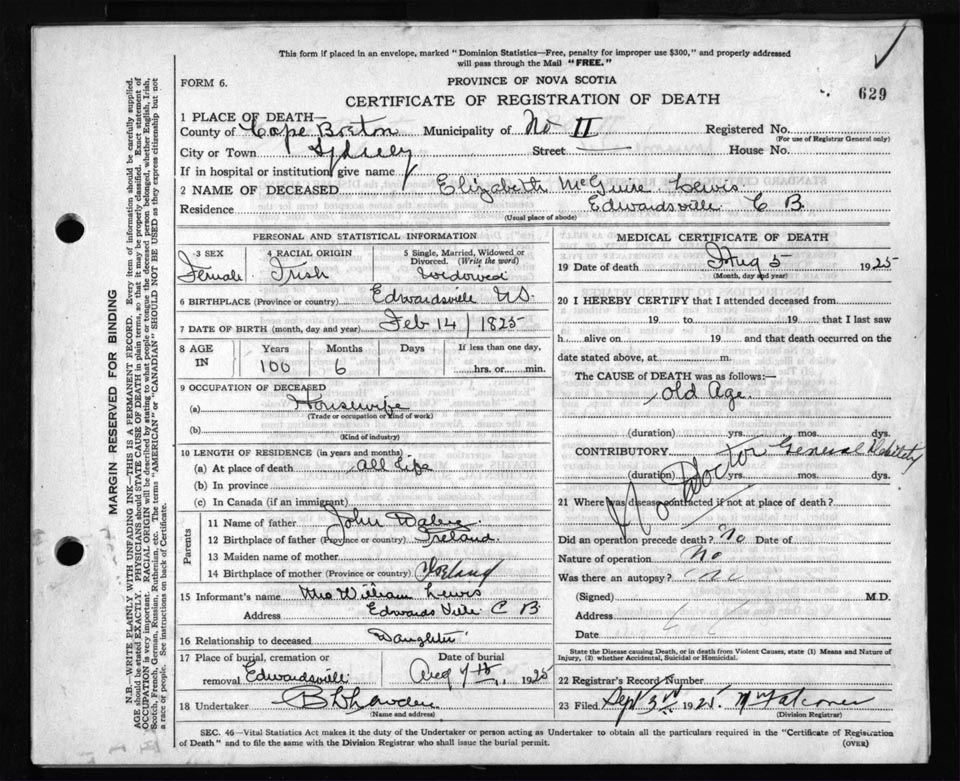 This form if placed in an envelope, marked "Dominion Statistics—Free, penalty for improper use $300," and properly addressed
will pass through the Mail "FREE."
FORM 6.
PROVINCE OF NOVA SCOTIA
629
CERTIFICATE OF REGISTRATION OF DEATH
1 PLACE OF DEATH—
County of Cape Breton Municipality of No II Registered No.
(For use of Registrar General only)
City or Town Sydney Street House No.
If in hospital or institution give name
2 NAME OF DECEASED Elizabeth McGuire Lewis
Residence Edwardsville C B.
(Usual place of abode)
PERSONAL AND STATISTICAL INFORMATION
3 SEX 4 RACIAL ORIGIN 5 Single, Married, Widowed or
Divorced. (Write the word)
Female Irish Widowed
6 BIRTHPLACE (Province or country) Edwardsville
7 DATE OF BIRTH (month, day and year) Feb 14 / 1825
8 AGE IN Years Months Days If less than one day,
100 6 hrs. or min.
9 OCCUPATION OF DECEASED
(a) Housewife
(Trade or occupation or kind of work)
(b)
(Kind of industry)
10 LENGTH OF RESIDENCE (in years and months)
(a) At place of death all life
(b) In province
(c) In Canada (if an immigrant)
Parents
11 Name of father John
12 Birthplace of father (Province or country) Ireland.
13 Maiden name of mother
14 Birthplace of mother (Province or country) Ireland
15 Informant's name Mrs William Lewis
Address Edwards Ville C B
16 Relationship to deceased Daughter
17 Place of burial, cremation or Date of burial
removal Edwardsville Aug 7th 1925
18 Undertaker
(Name and address)
MEDICAL CERTIFICATE OF DEATH
19 Date of death Aug 5 1925
(Month, day and year)
20 I HEREBY CERTIFY that I attended deceased from
19 to 19 that I last saw
h alive on 19 and that death occurred on the
date stated above, at m.
The CAUSE of DEATH was as follows:—
old Age.
(duration) yrs. mos. dys.
CONTRIBUTORY General Debility
(duration) yrs. mos. dys.
No Doctor
21 Where was disease contracted if not at place of death?
Did an operation precede death? No Date of
Nature of operation No
Was there an autopsy?
(Signed) M.D.
Address
Date
State the Disease causing Death, or in death from Violent Causes, state (1) Means and Nature of
Injury, (2) whether Accidental, Suicidal or Homicidal.
22 Registrar's Record Number
23 Filed Sept 3rd 1925.
(Division Registrar)
SEC. 46—Vital Statistics Act makes it the duty of the Undertaker or person acting as Undertaker to obtain all the particulars required in the "Certificate of Registration
of Death" and to file the same with the Division Registrar who shall issue the burial permit. (OVER)
MARGIN RESERVED FOR BINDING
N.B.—WRITE PLAINLY WITH UNFADING INK—THIS IS A PERMANENT RECORD. Every item of information should be carefully supplied.
AGE should be stated EXACTLY. PHYSICIANS should STATE CAUSE OF DEATH in plain terms, so that it may be properly classified. Exact statement of
OCCUPATION is very important. RACIAL ORIGIN will be described by stating to what people or tongue the deceased person belonged, whether English, Irish,
Scotch, French, German, Russian, Ruthenian, etc. The terms "AMERICAN" or "CANADIAN" SHOULD NOT BE USED as they express citizenship but not
a race or people. See instructions on back of Certificate.